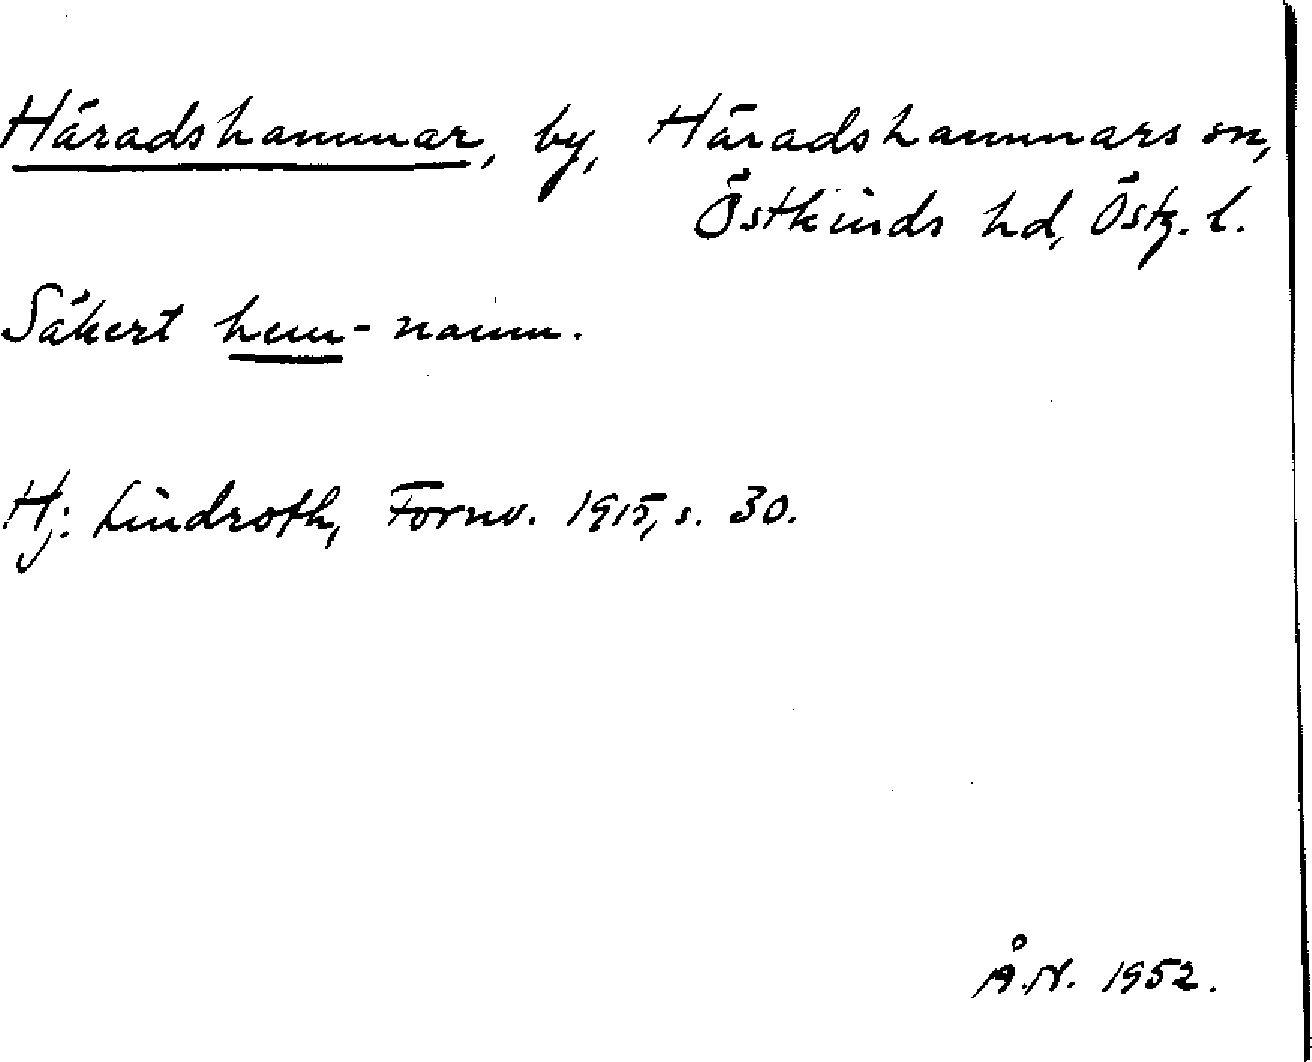 Häradshammar, by, Häradshammars sn,
Östkinds hd, Östg. l.
Säkert hem-namn.
Hj. Lindroth, Fornv. 1915, s. 30.
Å.N. 1952.